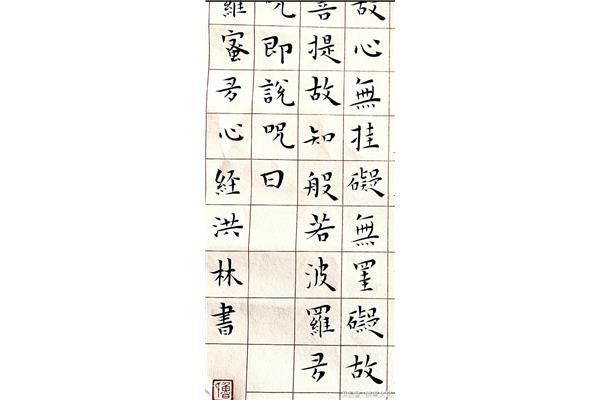 故心無挂礙無罣礙故
菩提故知般若波羅多
呪即說呪曰
羅蜜多心経洪林書